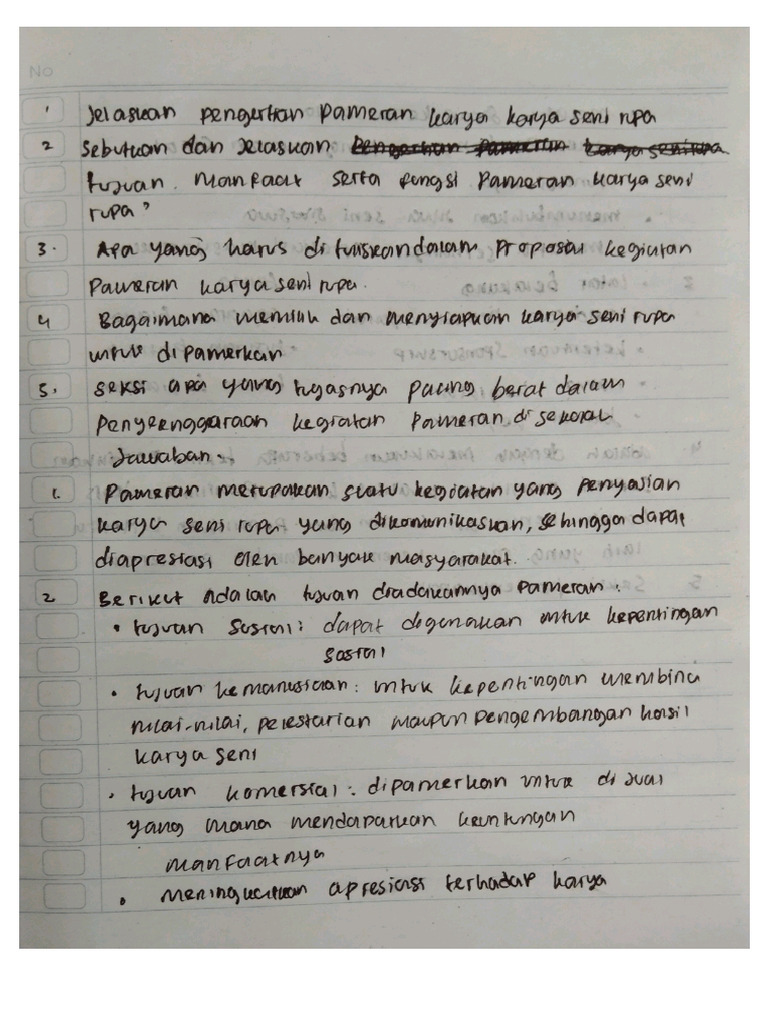 No
1 Jelaskan pengertian pameran karya karya seni rupa
2 Sebutkan dan Jelaskan pengertian pameran karya seni rupa
tujuan. Manfaat serta fungsi Pameran karya seni
rupa?
3. Apa yang harus di tuliskan dalam Proposal kegiatan
Pameran karya seni rupa.
4 Bagaimana memilih dan menyiapkan karya seni rupa
untuk di pamerkan
5. seksi apa yang tugasnya paling berat dalam
Penyelenggaraan kegiatan Pameran di sekolah
Jawaban.
1. Pameran merupakan suatu kegiatan yang penyajian
karya seni rupa yang dikomunikasikan, sehingga dapat
diapresiasi oleh banyak masyarakat.
2 Berikut adalah tujuan diadakannya pameran.
• tujuan Sosial: dapat digunakan untuk kepentingan
sosial
• tujuan kemanusiaan: untuk kepentingan membina
nilai-nilai, pelestarian maupun pengembangan hasil
karya seni
• tujuan komersial: dipamerkan untuk di jual
yang mana mendapatkan keuntungan
manfaatnya
• meningkatkan apresiasi terhadap karya